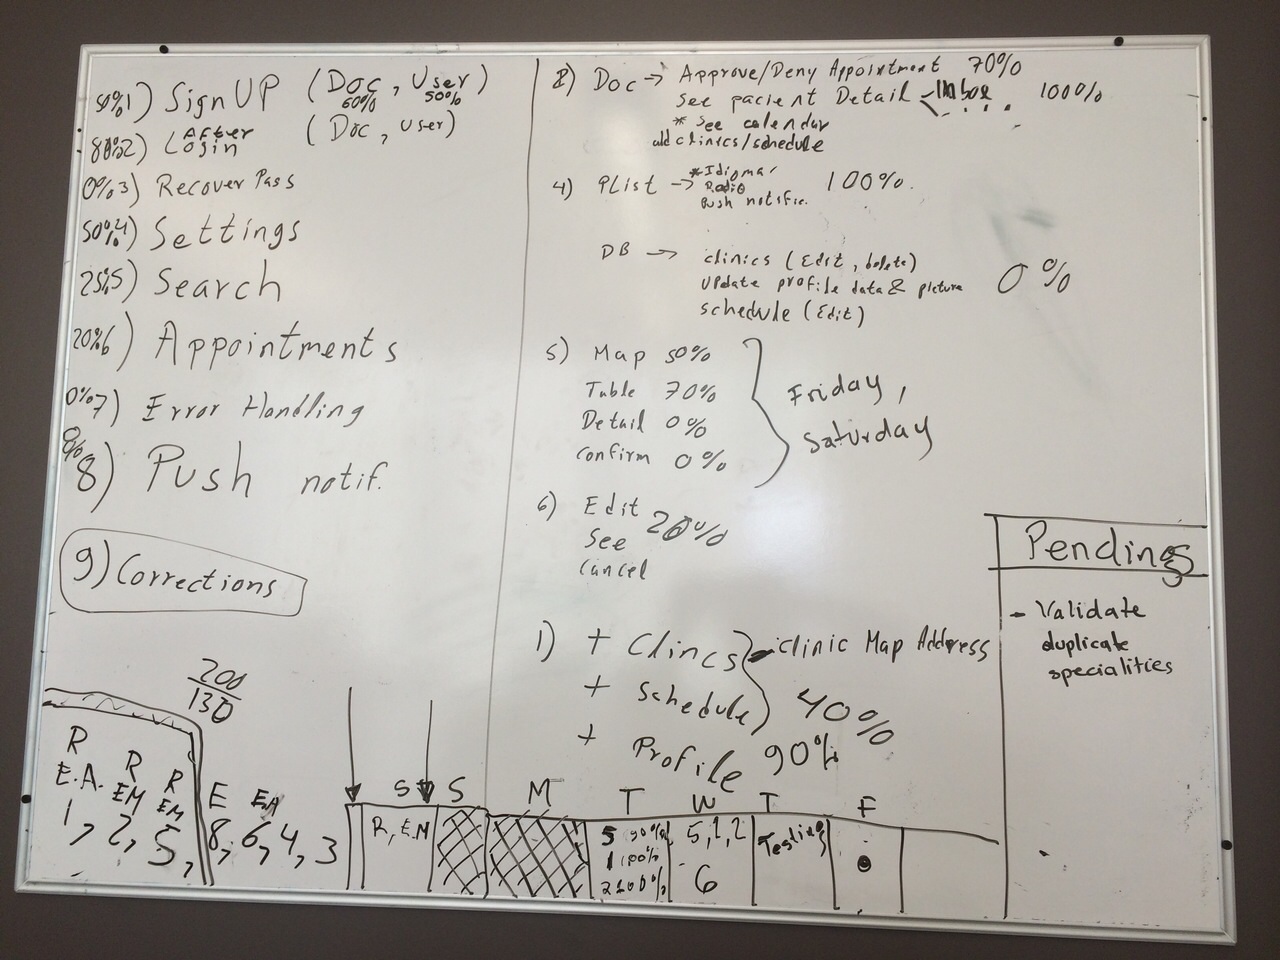 50% 1) Sign UP (Doc, User)
60% 50%
80% 2) After Login (Doc, User)
0% 3) Recover Pass
50% 4) Settings
25% 5) Search
20% 6) Appointments
0% 7) Error Handling
0% 8) Push notif.
9) Corrections
200
130
R R R
E.A. EM EM E EA
1, 2, 5, 8, 6, 4, 3
2) Doc → Approve/Deny Appointment 70%
See pacient Detail Inbox 100%
* See calendar
add clinics/schedule
4) PList → * Idioma 100%.
Radio
Push notific.
DB → clinics (Edit, Delete)
Update profile data & picture 0%
schedule (Edit)
5) Map 50%
Table 70%
Detail 0%
confirm 0%
Friday,
Saturday
6) Edit
See 20%
cancel
1) + Clincs - clinic Map Address
+ Schedule 40%
+ Profile 90%
S S M T W T F
R, EM
5 90% 5, 1, 2 Testing
1 100%
2 100% 6
Pendings
- Validate
duplicate
specialities